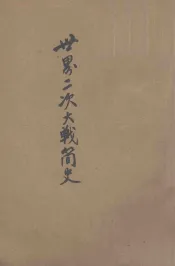 世界二次大戰简史